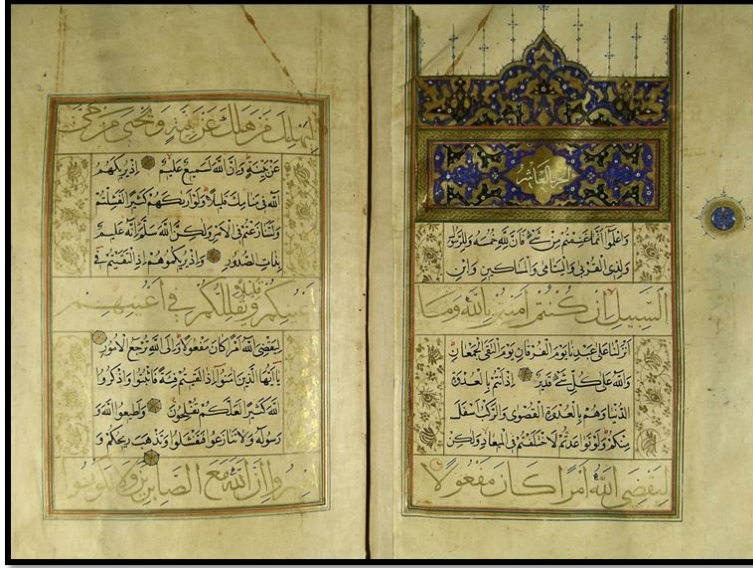 الجزء العاشر
وَاعْلَمُوا أَنَّمَا غَنِمْتُمْ مِنْ شَيْءٍ فَأَنَّ لِلَّهِ خُمُسَهُ وَلِلرَّسُولِ
وَلِذِي الْقُرْبَى وَالْيَتَامَى وَالْمَسَاكِينِ وَابْنِ
السَّبِيلِ إِنْ كُنْتُمْ آمَنْتُمْ بِاللَّهِ وَمَا
أَنْزَلْنَا عَلَى عَبْدِنَا يَوْمَ الْفُرْقَانِ يَوْمَ الْتَقَى الْجَمْعَانِ
وَاللَّهُ عَلَى كُلِّ شَيْءٍ قَدِيرٌ إِذْ أَنْتُمْ بِالْعُدْوَةِ
الدُّنْيَا وَهُمْ بِالْعُدْوَةِ الْقُصْوَى وَالرَّكْبُ أَسْفَلَ
مِنْكُمْ وَلَوْ تَوَاعَدْتُمْ لَاخْتَلَفْتُمْ فِي الْمِيعَادِ وَلَكِنْ
لِيَقْضِيَ اللَّهُ أَمْرًا كَانَ مَفْعُولًا
لِيَهْلِكَ مَنْ هَلَكَ عَنْ بَيِّنَةٍ وَيَحْيَى مَنْ حَيَّ
عَنْ بَيِّنَةٍ وَإِنَّ اللَّهَ لَسَمِيعٌ عَلِيمٌ إِذْ يُرِيكَهُمُ
اللَّهُ فِي مَنَامِكَ قَلِيلًا وَلَوْ أَرَيكَهُمْ كَثِيرًا لَفَشِلْتُمْ
وَلَتَنَازَعْتُمْ فِي الْأَمْرِ وَلَكِنَّ اللَّهَ سَلَّمَ إِنَّهُ عَلِيمٌ
بِذَاتِ الصُّدُورِ وَإِذْ يُرِيكُمُوهُمْ إِذِ الْتَقَيْتُمْ فِي
أَعْيُنِكُمْ قَلِيلًا وَيُقَلِّلُكُمْ فِي أَعْيُنِهِمْ
لِيَقْضِيَ اللَّهُ أَمْرًا كَانَ مَفْعُولًا وَإِلَى اللَّهِ تُرْجَعُ الْأُمُورُ
يَا أَيُّهَا الَّذِينَ آمَنُوا إِذَا لَقِيتُمْ فِئَةً فَاثْبُتُوا وَاذْكُرُوا
اللَّهَ كَثِيرًا لَعَلَّكُمْ تُفْلِحُونَ وَأَطِيعُوا اللَّهَ وَ
رَسُولَهُ وَلَا تَنَازَعُوا فَتَفْشَلُوا وَتَذْهَبَ رِيحُكُمْ وَ
اصْبِرُوا إِنَّ اللَّهَ مَعَ الصَّابِرِينَ وَلَا تَكُونُوا